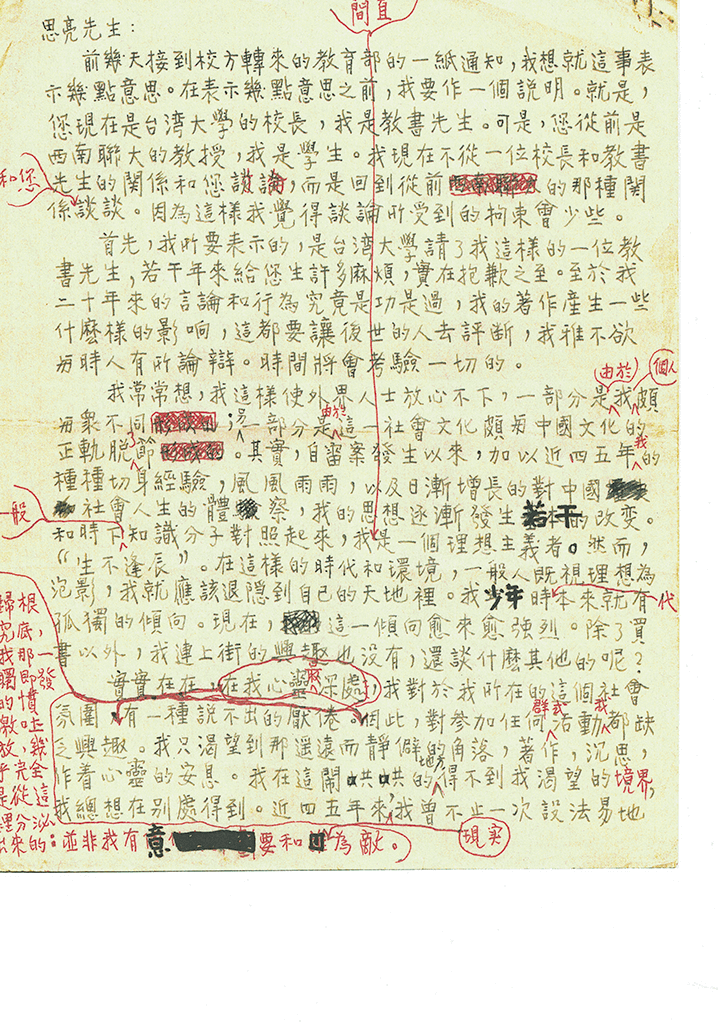 直
間
思亮先生：
前幾天接到校方轉來的教育部的一紙通知，我想就這事表
示幾點意思。在表示幾點意思之前，我要作一個說明。就是，
您現在是台湾大學的校長，我是教書先生。可是，您從前是
西南聯大的教授，我是學生。我現在不從一位校長和教書
和您
先生的關係和您談論，而是回到從前的那種関
係談談。因為這樣我覺得談論所受到的拘束會少些。
首先，我所要表示的，是台湾大學請了我這樣的一位教
書先生，若干年來給您生許多麻煩，實在抱歉之至。至於我
二十年來的言論和行為究竟是功是過，我的著作産生一些
什麼樣的影响，這都要讓後世的人去評断，我雅不欲
与時人有所論辯。時間將會考驗一切的。
由於 個人
我常常想，我這樣使外界人士放心不下，一部分是我頗
与衆不同；另一部分是由於這一社會文化頗与中國文化的
正軌脫了節。其實，自雷案發生以來，加以近四五年我的
種種切身經驗，風風雨雨，以及日漸增長的對中國
社會人生的體察，我的思想逐漸發生若干的改变。
一般
和時下知識分子對照起來，我是一個理想主義者。然而，
“生不逢辰”。在這樣的時代和環境，一般人既視理想為
泡影，我就應該退隱到自己的天地裡。我少年時本來就有
代
孤獨的傾向。現在，這一傾向愈來愈強烈。除了買
書以外，我連上街的興趣也没有，還談什麼其他的呢？
實實在在，在我心靈深處，我對於我所在的這個社會
氛圍，有一種說不出的厭倦。因此，對參加任何群式活動我都缺
乏興趣。我只渴望到那遥遠而静僻的角落，著作，沉思，
作着心靈的安息。我在這鬧哄哄的地方得不到我渴望的境界，
我總想在别處得到。近四五年來，我曾不止一次設法易地
歸根
究底，
我那一
即發
的憤
激吐
放，幾
乎完全
是從這
裡分泌
出來的：並非我有意要和現实為敵。